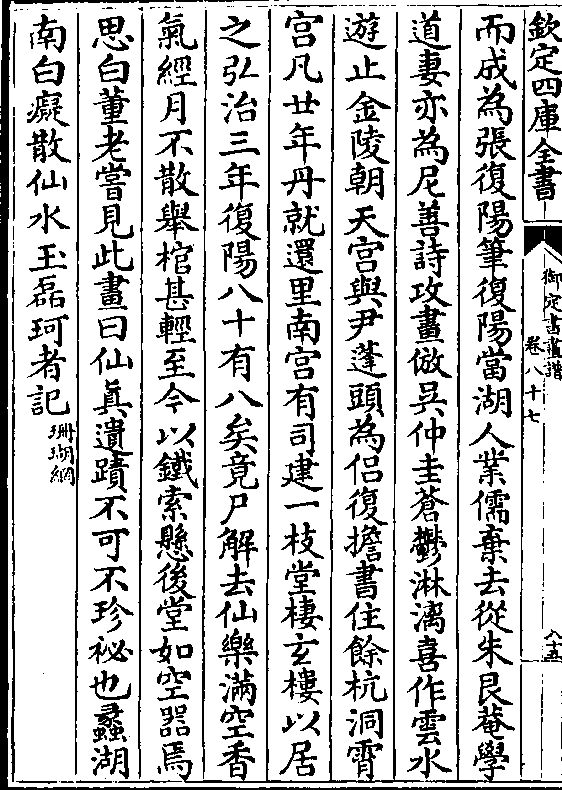 欽定四庫全書
御定書畫譜
卷八十七
八十五
而成為張復陽筆復陽當湖人業儒棄去從朱艮菴學
道妻亦為尼善詩攻畫倣吳仲圭蒼鬱淋漓喜作雲水
遊止金陵朝天宮與尹蓬頭為侶復擔書住餘杭洞霄
宮凡廿年丹就還里南宮有司建一枝堂棲玄樓以居
之弘治三年復陽八十有八矣竟尸解去仙樂滿空香
氣經月不散舉棺甚輕至今以鐵索懸後堂如空器焉
思白董老嘗見此畫曰仙真遺蹟不可不珍祕也蠡湖
南白癡散仙水玉磊珂者記珊瑚網